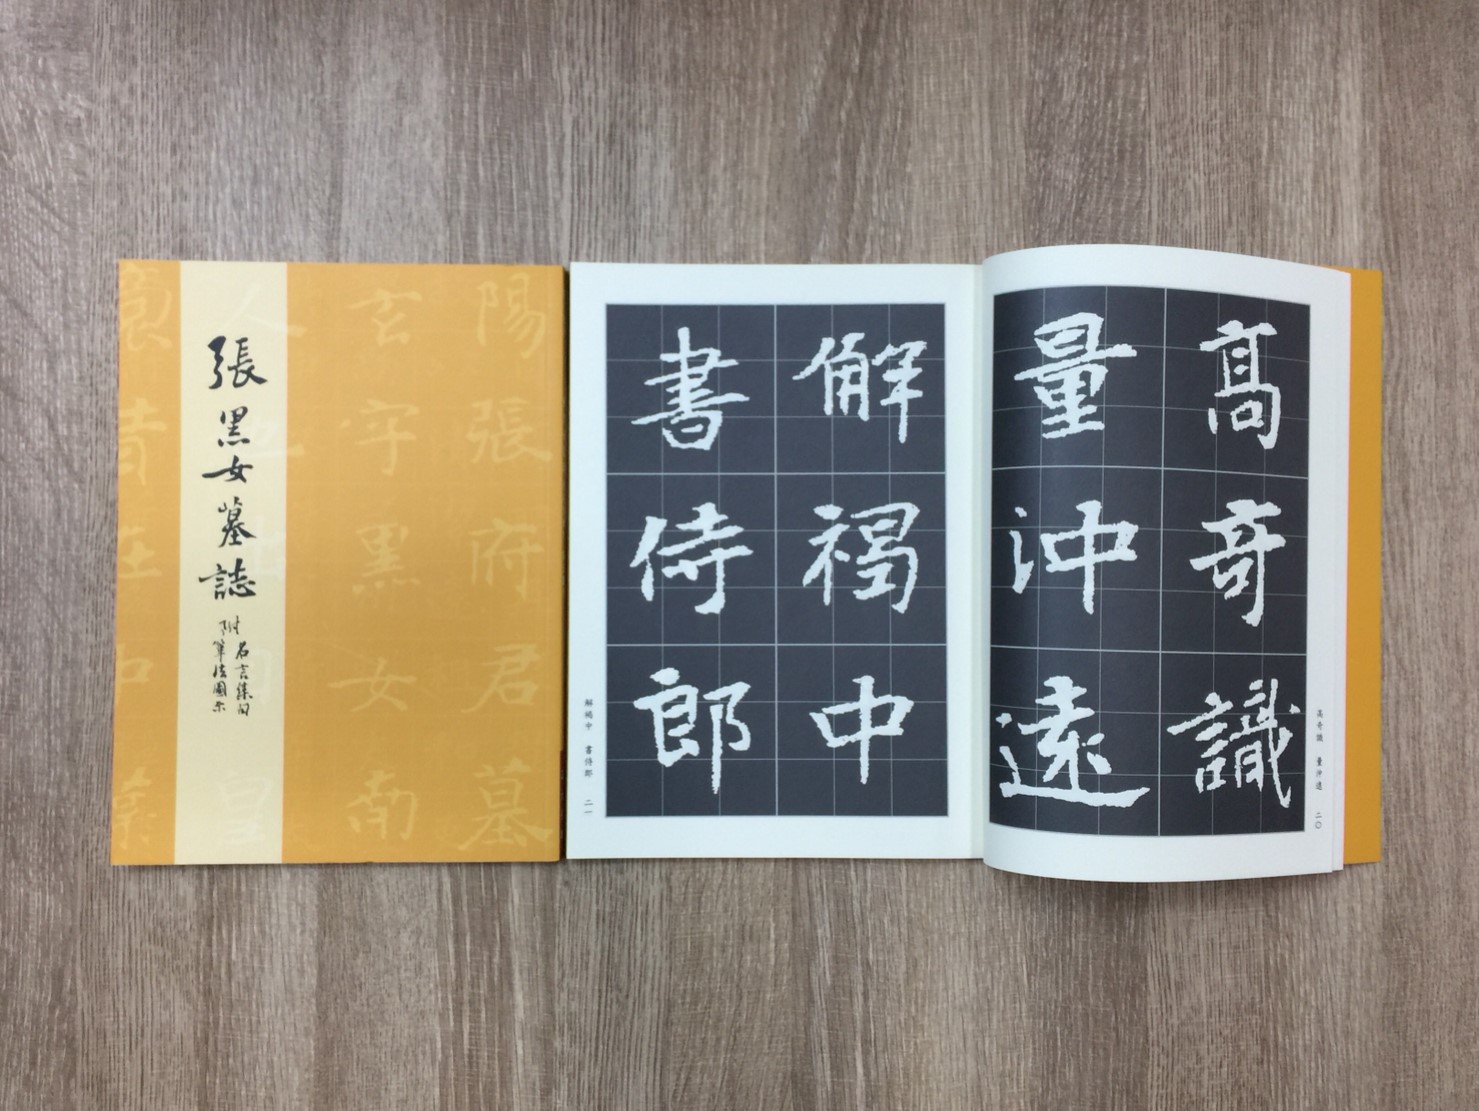 張黑女墓誌
附
名言集句
筆法圖示
陽張府君墓
玄字黑女南
高奇識
量沖遠
高奇識 量沖遠 二〇
解褐中
書侍郎
解褐中 書侍郎 二一